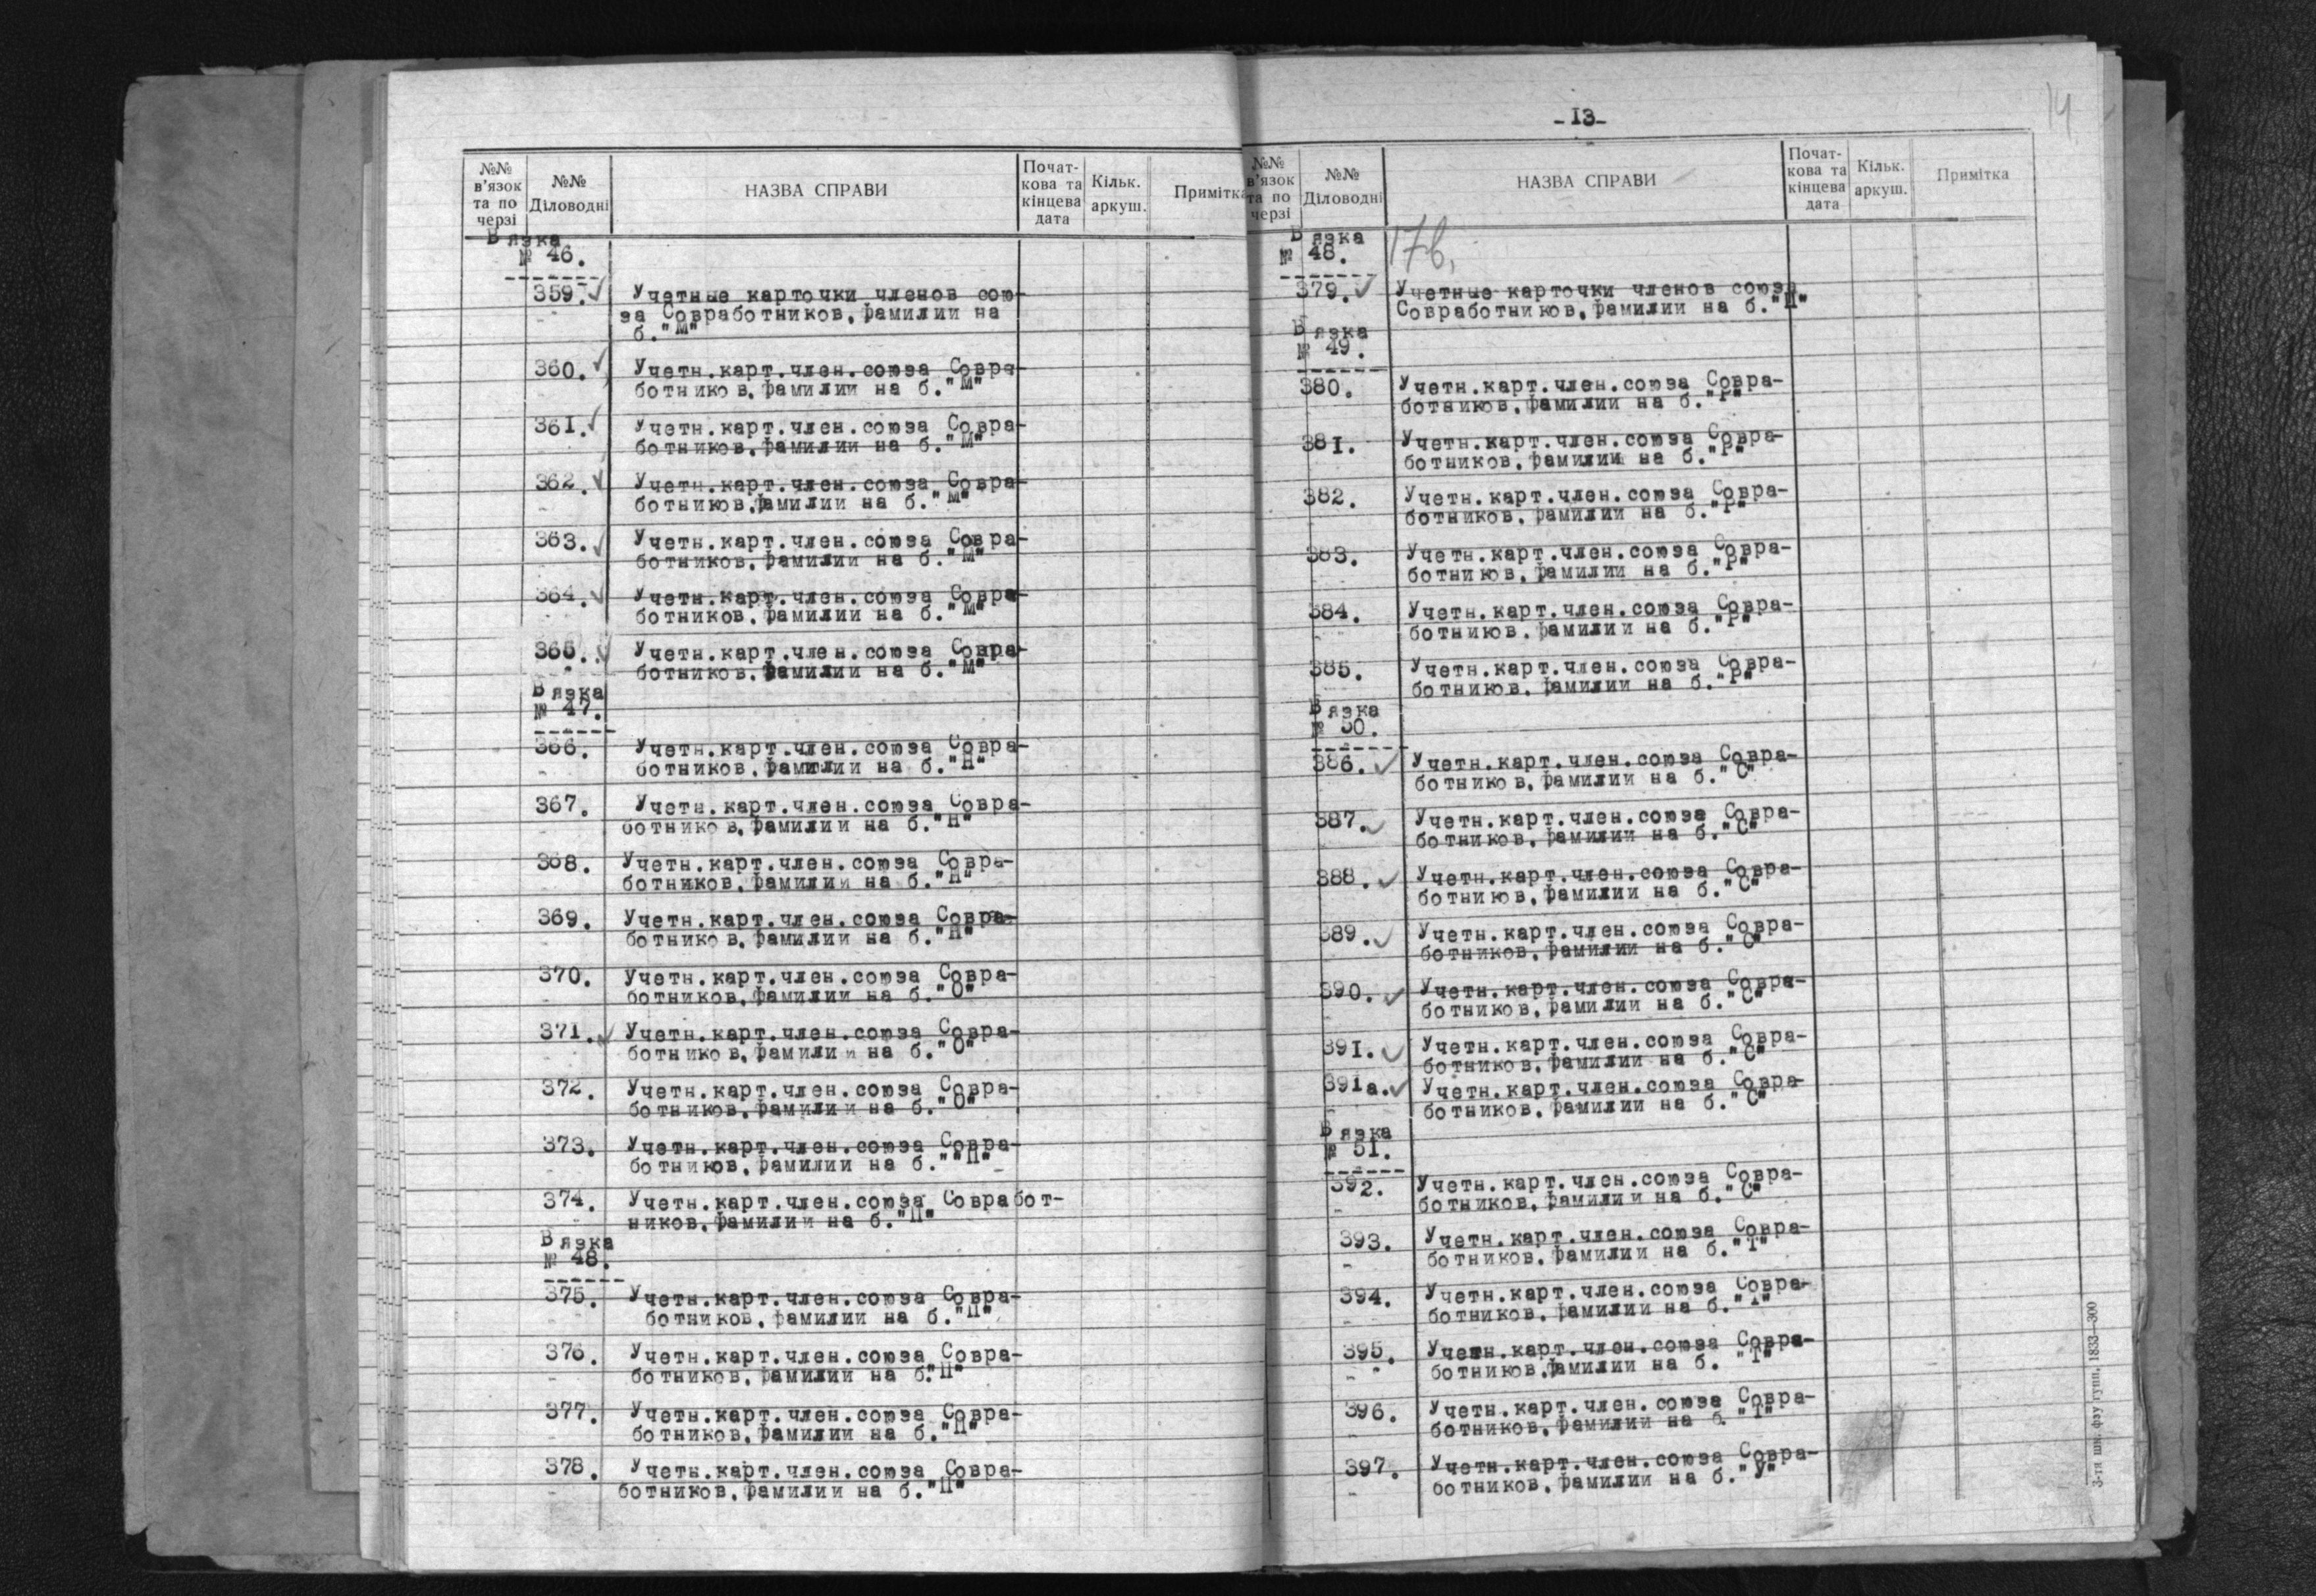 №№ в'язок та по черзі
№№ Діловодні
НАЗВА СПРАВИ
Почат-кова та кінцева дата
Кільк. аркуш.
Примітка
Вязка
№ 46.
359. Учетные карточки членов сою-
за Совработников, фамилии на
б. "М"
360. Учетн.карт.член.союза Совра-
ботников, фамилии на б. "М"
361. Учетн.карт.член.союза Совра-
ботников, фамилии на б. "М"
362. Учетн.карт.член.союза Совра-
ботников, фамилии на б. "М"
363. Учетн.карт.член.союза Совра-
ботников, фамилии на б. "М"
364. Учетн.карт.член.союза Совра-
ботников, фамилии на б. "М"
365. Учетн.карт.член.союза Совра-
ботников, фамилии на б. "М"
Вязка
№ 47.
366. Учетн.карт.член.союза Совра-
ботников, фамилии на б. "Н"
367. Учетн.карт.член.союза Совра-
ботников, фамилии на б. "Н"
368. Учетн.карт.член.союза Совра-
ботников, фамилии на б. "Н"
369. Учетн.карт.член.союза Совра-
ботников, фамилии на б. "Н"
370. Учетн.карт.член.союза Совра-
ботников, фамилии на б. "О"
371. Учетн.карт.член.союза Совра-
ботников, фамилии на б. "О"
372. Учетн.карт.член.союза Совра-
ботников, фамилии на б. "О"
373. Учетн.карт.член.союза Совра-
ботников, фамилии на б. ""П"
374. Учетн.карт.член.союза Совработ-
ников, фамилии на б. "П"
Вязка
№ 48.
375. Учетн.карт.член.союза Совра-
ботников, фамилии на б. "П"
376. Учетн.карт.член.союза Совра-
ботников, фамилии на б. "П"
377. Учетн.карт.член.союза Совра-
ботников, фамилии на б. "П"
378. Учетн.карт.член.союза Совра-
ботников, фамилии на б. "П"
-13-
14
№№ в'язок та по черзі
№№ Діловодні
НАЗВА СПРАВИ
Почат-кова та кінцева дата
Кільк. аркуш.
Примітка
Вязка
№ 48.
379. Учетные карточки членов союза
Совработников, фамилии на б. "П"
Вязка
№ 49.
380. Учетн.карт.член.союза Совра-
ботников, фамилии на б. "Р"
381. Учетн.карт.член.союза Совра-
ботников, фамилии на б. "Р"
382. Учетн.карт.член.союза Совра-
ботников, фамилии на б. "Р"
383. Учетн.карт.член.союза Совра-
ботников, фамилии на б. "Р"
384. Учетн.карт.член.союза Совра-
ботников, фамилии на б. "Р"
385. Учетн.карт.член.союза Совра-
ботников, фамилии на б. "Р"
Вязка
№ 50.
386. Учетн.карт.член.союза Совра-
ботников, фамилии на б. "С"
387. Учетн.карт.член.союза Совра-
ботников, фамилии на б. "С"
388. Учетн.карт.член.союза Совра-
ботников, фамилии на б. "С"
389. Учетн.карт.член.союза Совра-
ботников, фамилии на б. "С"
390. Учетн.карт.член.союза Совра-
ботников, фамилии на б. "С"
391. Учетн.карт.член.союза Совра-
ботников, фамилии на б. "С"
391а. Учетн.карт.член.союза Совра-
ботников, фамилии на б. "С"
Вязка
№ 51.
392. Учетн.карт.член.союза Совра-
ботников, фамилии на б. "С"
393. Учетн.карт.член.союза Совра-
ботников, фамилии на б. "Т"
394. Учетн.карт.член.союза Совра-
ботников, фамилии на б. "Т"
395. Учетн.карт.член.союза Совра-
ботников, фамилии на б. "Т"
396. Учетн.карт.член.союза Совра-
ботников, фамилии на б. "Т"
397. Учетн.карт.член.союза Совра-
ботников, фамилии на б. "У"
3-тя шк. фзу гупп. 1833—300